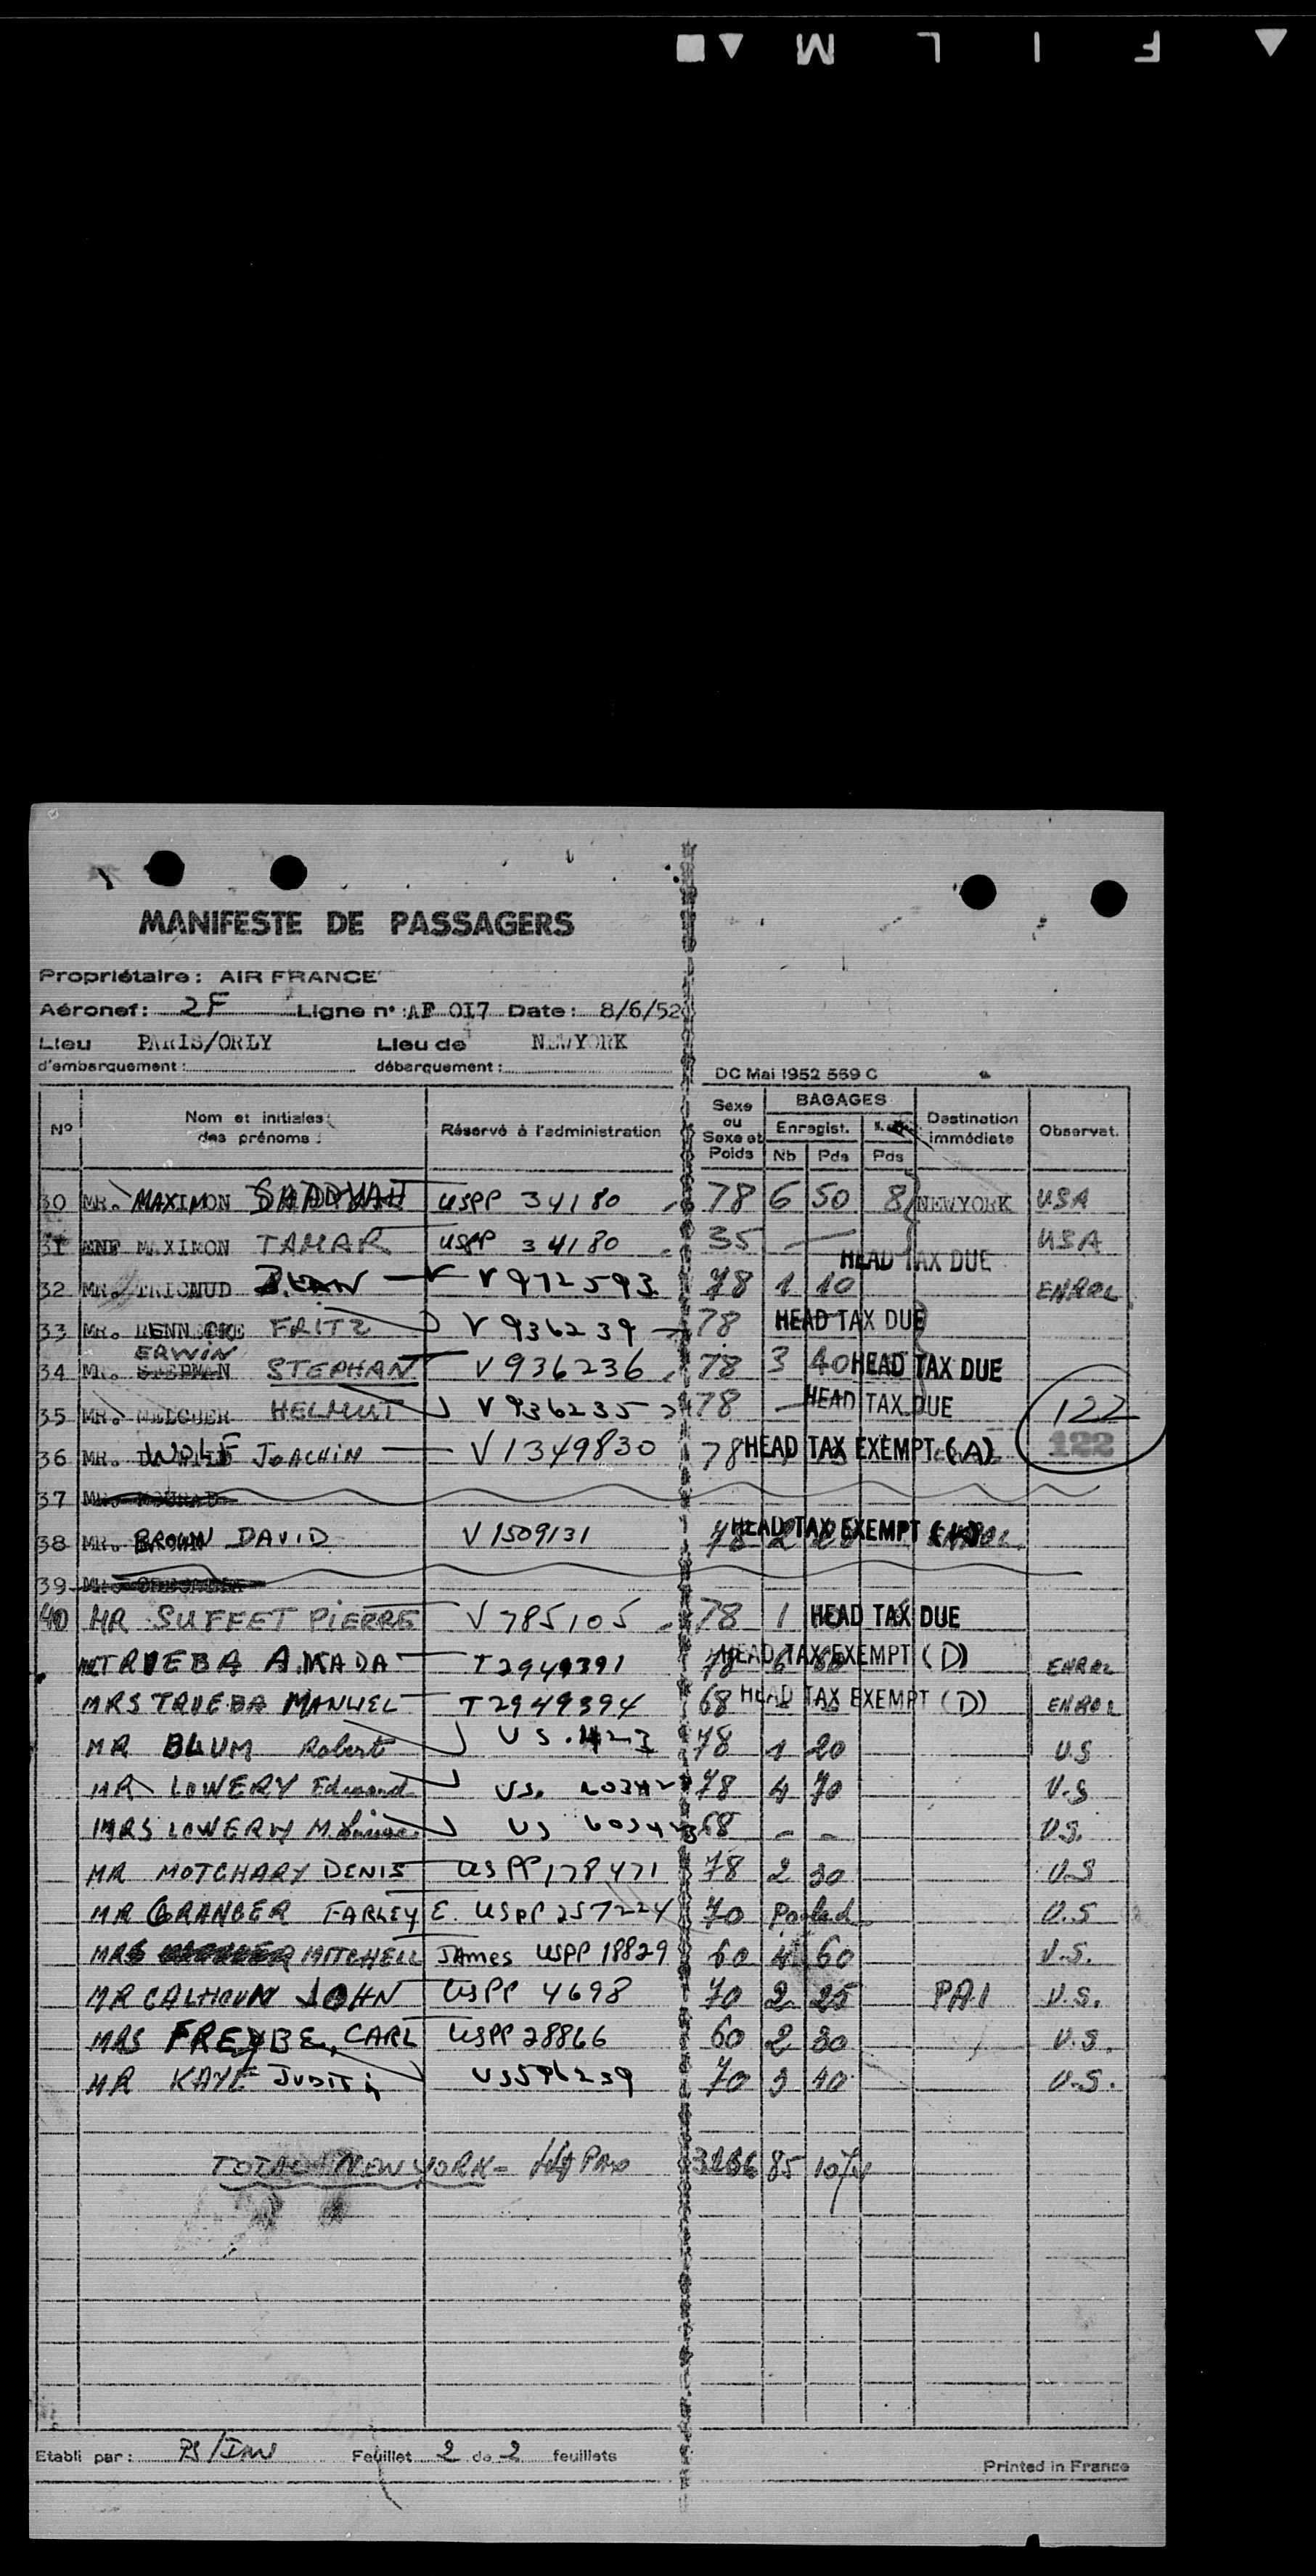 F I L M
MANIFESTE DE PASSAGERS
Propriétaire: AIR FRANCE
Aéronef: 2F Ligne n° : AF 017 Date: 8/6/52
Lieu d'embarquement: PARIS/ORLY Lieu de débarquement: NEWYORK
DC Mai 1952 559 C
N° Nom et initiales des prénoms : Réservé à l'administration Sexe ou Sexe et Poids BAGAGES Enregist. Nb Pds Pds Destination immédiate Observat.
30 MR. MAXIMON USPP 34180 78 6 50 8 NEWYORK USA
31 MAXIMON TAMAR USPP 34180 35 — USA
HEAD TAX DUE
32 MR. V 972593 78 1 10 ENROL
33 MR. HENNECKE FRITZ V 936239 78 HEAD TAX DUE
ERWIN
34 MR. STEPHAN V 936236 78 3 40 HEAD TAX DUE
35 MR. HELMUT V 936235 78 — HEAD TAX DUE 122
36 MR. WOLF JOACHIM V 1349830 78 HEAD TAX EXEMPT (A) 122
37
38 MR. BROWN DAVID V 1509131 78 2 HEAD TAX EXEMPT
39
40 MR SUFFET PIERRE V 785105 78 1 HEAD TAX DUE
TRUEBA AMADA T2949391 78 HEAD TAX EXEMPT (D) ENROL
MRS TRUEBA MANUEL T2949394 68 HEAD TAX EXEMPT (D) ENROL
MR BLUM Robert US. 78 1 20 U.S
MR LOWERY Edmond US. 78 4 70 U.S
MRS LOWERY M. US 68 - - U.S.
MR MOTCHARY DENIS US PP 178471 78 2 30 U.S
MR GRANGER FARLEY E. USPP 257224 70 U.S
MR MITCHELL JAMES USPP 18829 60 4 60 U.S.
MR CALHOUN JOHN USPP 4698 70 2 25 PAI U.S.
MRS FREYBE, CARL USPP 28866 60 2 30 U.S.
MR KAYE JUDITH US596239 70 3 40 U.S.
TOTAL NEW YORK = 85
Etabli par: PS/ Feuillet 2 de 2 feuillets
Printed in France